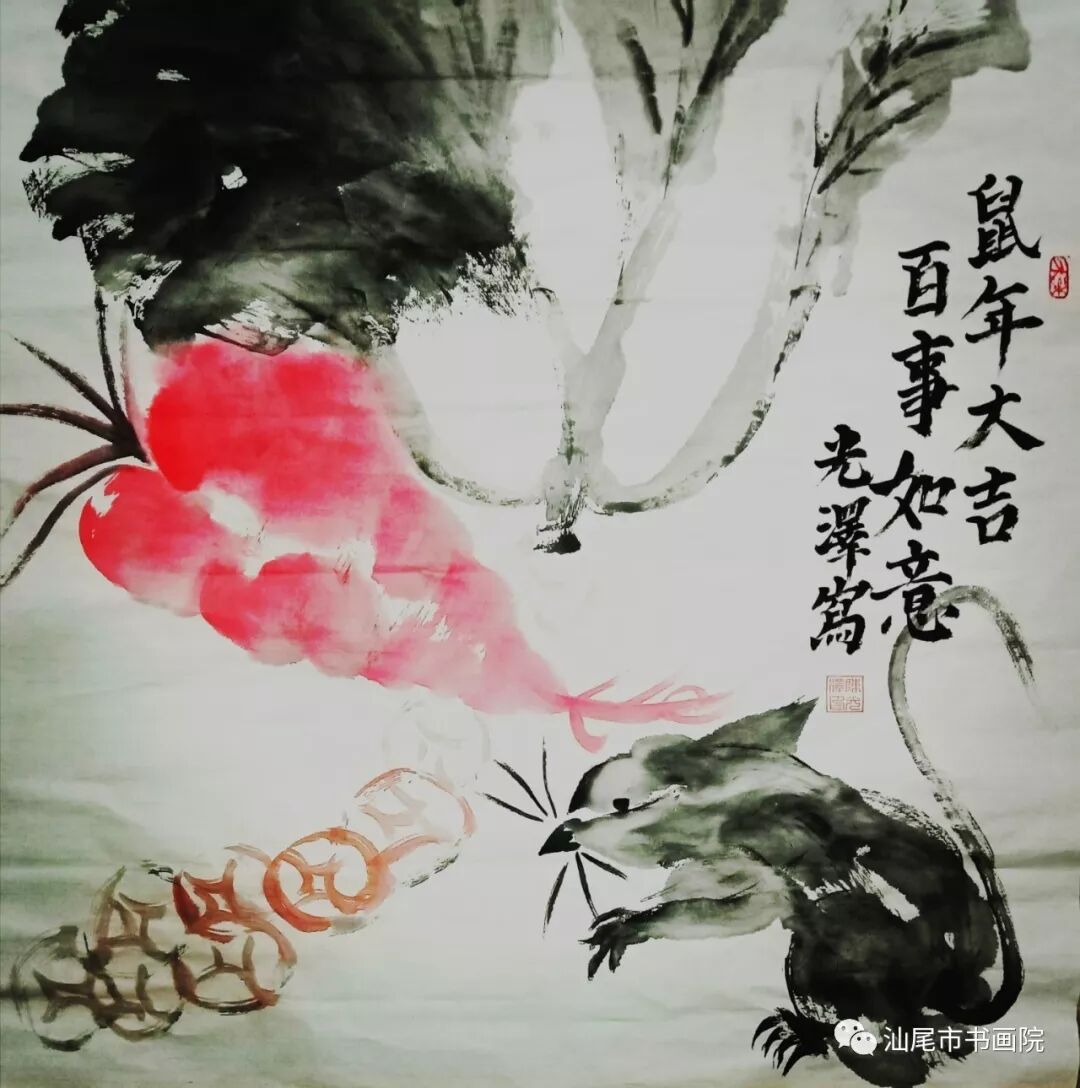 鼠年大吉
百事如意
光澤寫
汕尾市书画院